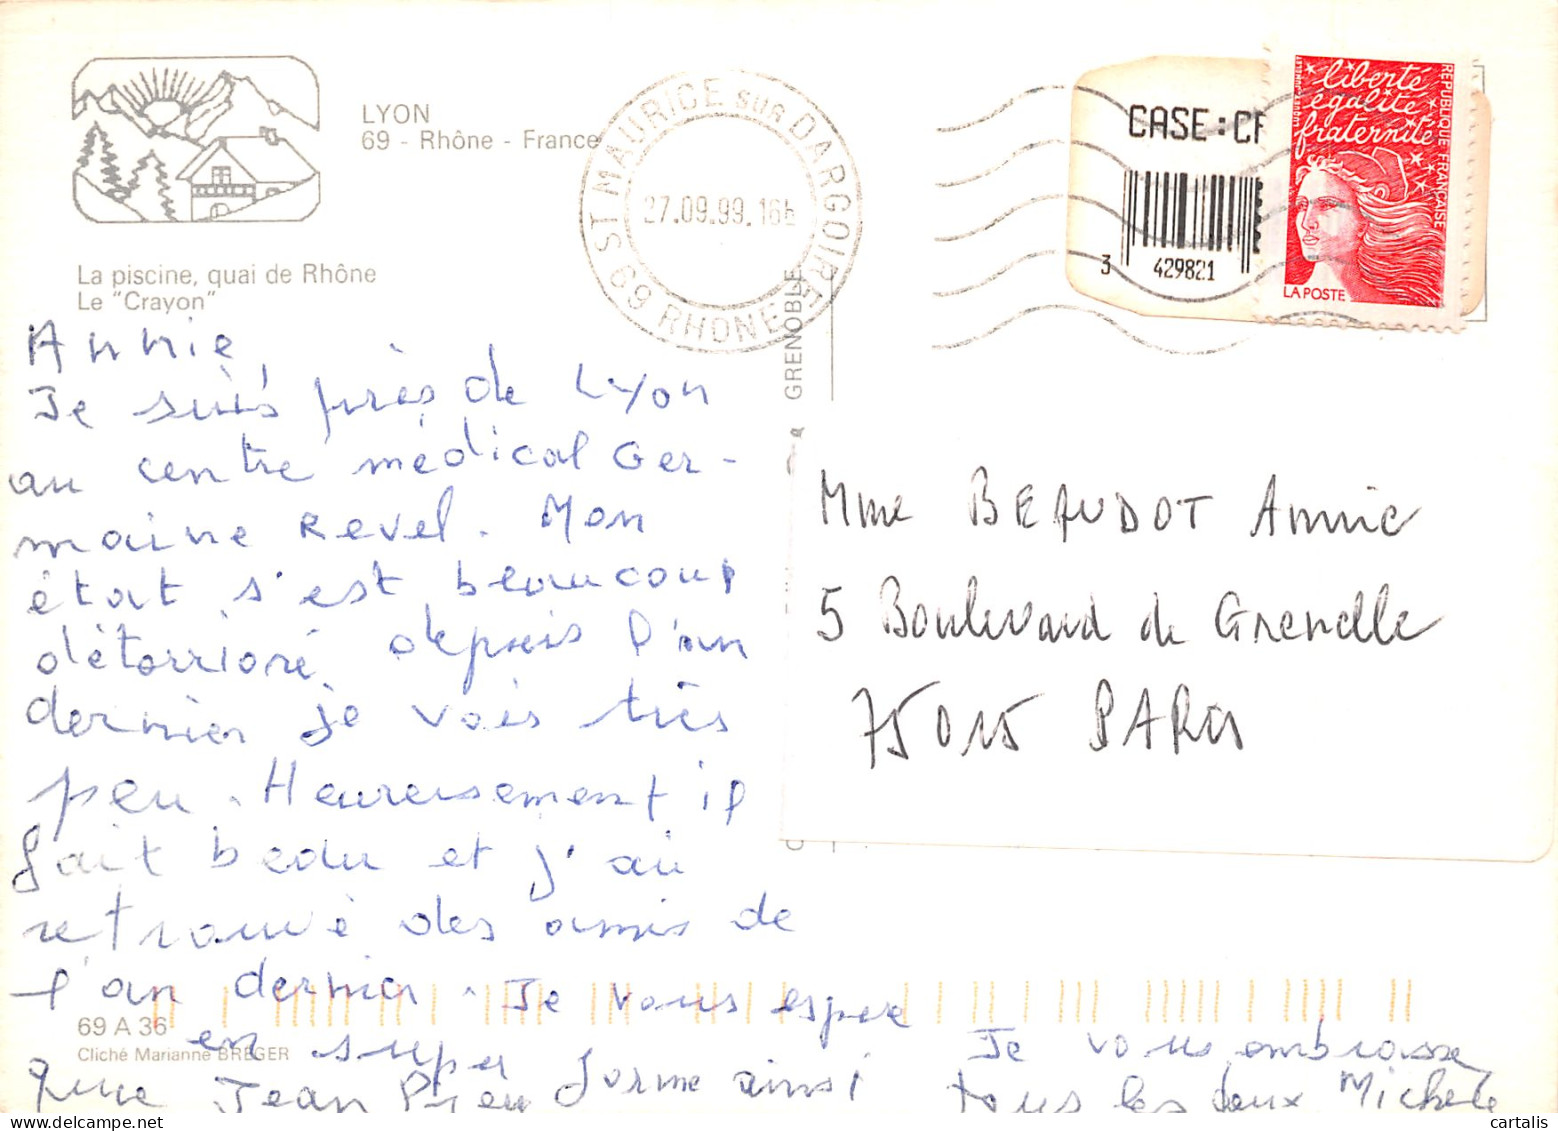 LYON
69 - Rhône - France
La piscine, quai de Rhône
Le "Crayon"
ST MAURICE sur DARGOIRE
27.09.99.16h
69 RHONE
CASE : CF
3 429821
liberté
égalité
fraternité
RÉPUBLIQUE FRANÇAISE
LA POSTE
GRENOBLE
Annie
Je suis près de Lyon
au centre médical Ger-
maine Revel. Mon
état s'est beaucoup
détorrioré depuis l'an
dernier je vois très
peu. Heureusement il
fait beau et j'ai
retrouvé des amis de
l'an dernier. Je vous espère
en super forme ainsi
que Jean Pierre
Je vous embrasse
tous les deux Michele
Mme BEAUDOT Annie
5 Boulevard de Grenelle
75015 PARIS
69 A 36
Cliché Marianne BREGER
cartalis